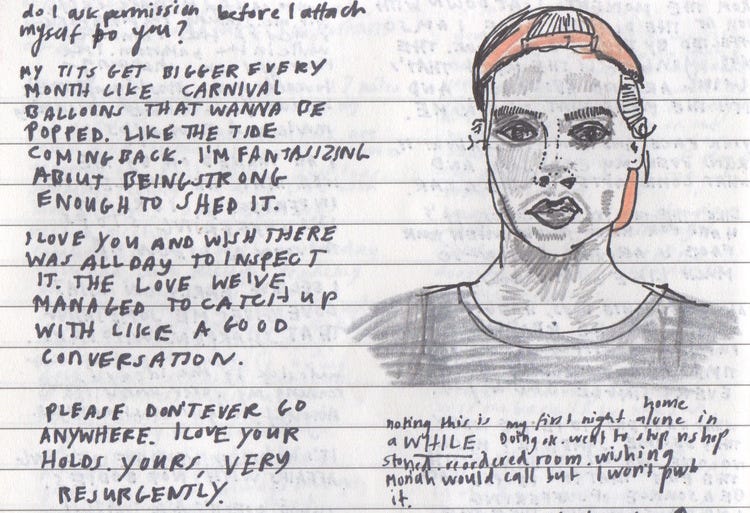 do I ask permission before I attach
myself to you?
MY TITS GET BIGGER EVERY
MONTH LIKE CARNIVAL
BALLOONS THAT WANNA BE
POPPED. LIKE THE TIDE
COMING BACK. I'M FANTASIZING
ABOUT BEING STRONG
ENOUGH TO SHED IT.
I LOVE YOU AND WISH THERE
WAS ALL DAY TO INSPECT
IT. THE LOVE WE'VE
MANAGED TO CATCH UP
WITH LIKE A GOOD
CONVERSATION.
PLEASE DON'T EVER GO
ANYWHERE. I LOVE YOUR
HOLDS. YOURS, VERY
RESURGENTLY.
noting this is my first night home alone in
a WHILE. Doing ok. went to stop n shop
stoned, reordered room. wishing
Moriah would call but I won't push
it.